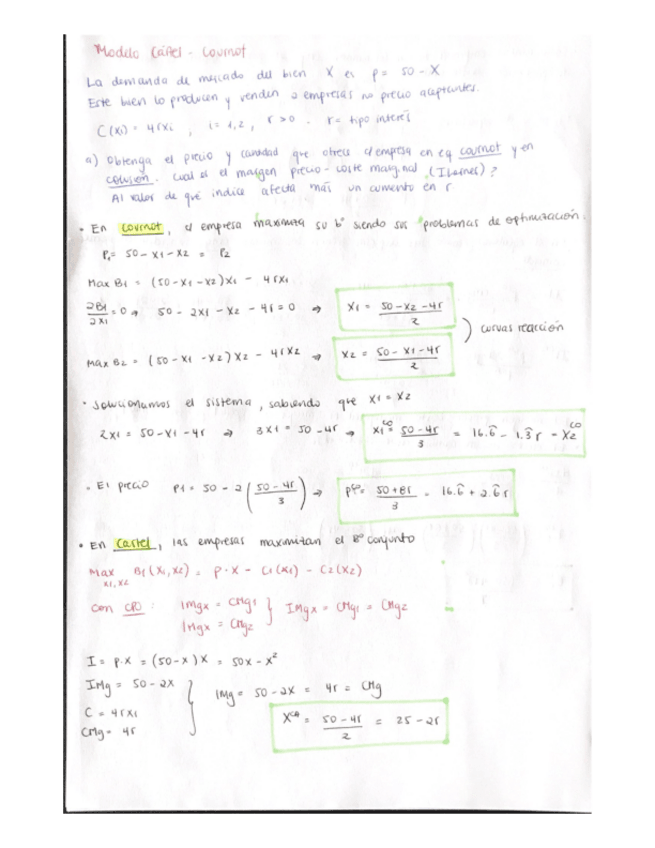 Modelo Cártel - Cournot
La demanda de mercado del bien X es p = 50 - X
Este bien lo producen y venden 2 empresas no precio aceptantes.
C(xi) = 4rxi , i = 1,2 , r > 0 . r = tipo interés
a) Obtenga el precio y cantidad que ofrece c/empresa en eq cournot y en
colusión. Cual es el margen precio - coste marginal (Ilerner)?
Al valor de qué indice afecta más un aumento en r
• En Cournot, c/ empresa maximiza su bº siendo sus problemas de optimización:
P1 = 50 - x1 - x2 = P2
Max B1 = (50 - x1 - x2)x1 - 4rx1
∂B1/∂x1 = 0 → 50 - 2x1 - x2 - 4r = 0 → x1 = (50 - x2 - 4r)/2
) curvas reacción
Max B2 = (50 - x1 - x2)x2 - 4rx2 → x2 = (50 - x1 - 4r)/2
• Solucionamos el sistema, sabiendo que x1 = x2
2x1 = 50 - x1 - 4r → 3x1 = 50 - 4r → x1^CO = (50 - 4r)/3 = 16.6̂ - 1.3̂r = x2^CO
- El precio P1 = 50 - 2((50 - 4r)/3) → p^CO = (50 + 8r)/3 = 16.6̂ + 2.6̂r
• En Cartel, las empresas maximizan el Bº conjunto
Max x1,x2 B1(x1,x2) = p·X - C1(x1) - C2(x2)
Con CPO : IMgx = CMg1
IMgx = CMg2 } IMgx = CMg1 = CMg2
I = p·x = (50 - x)x = 50x - x²
IMg = 50 - 2x
} IMg = 50 - 2x = 4r = CMg
C = 4rx1
CMg = 4r
X^CA = (50 - 4r)/2 = 25 - 2r